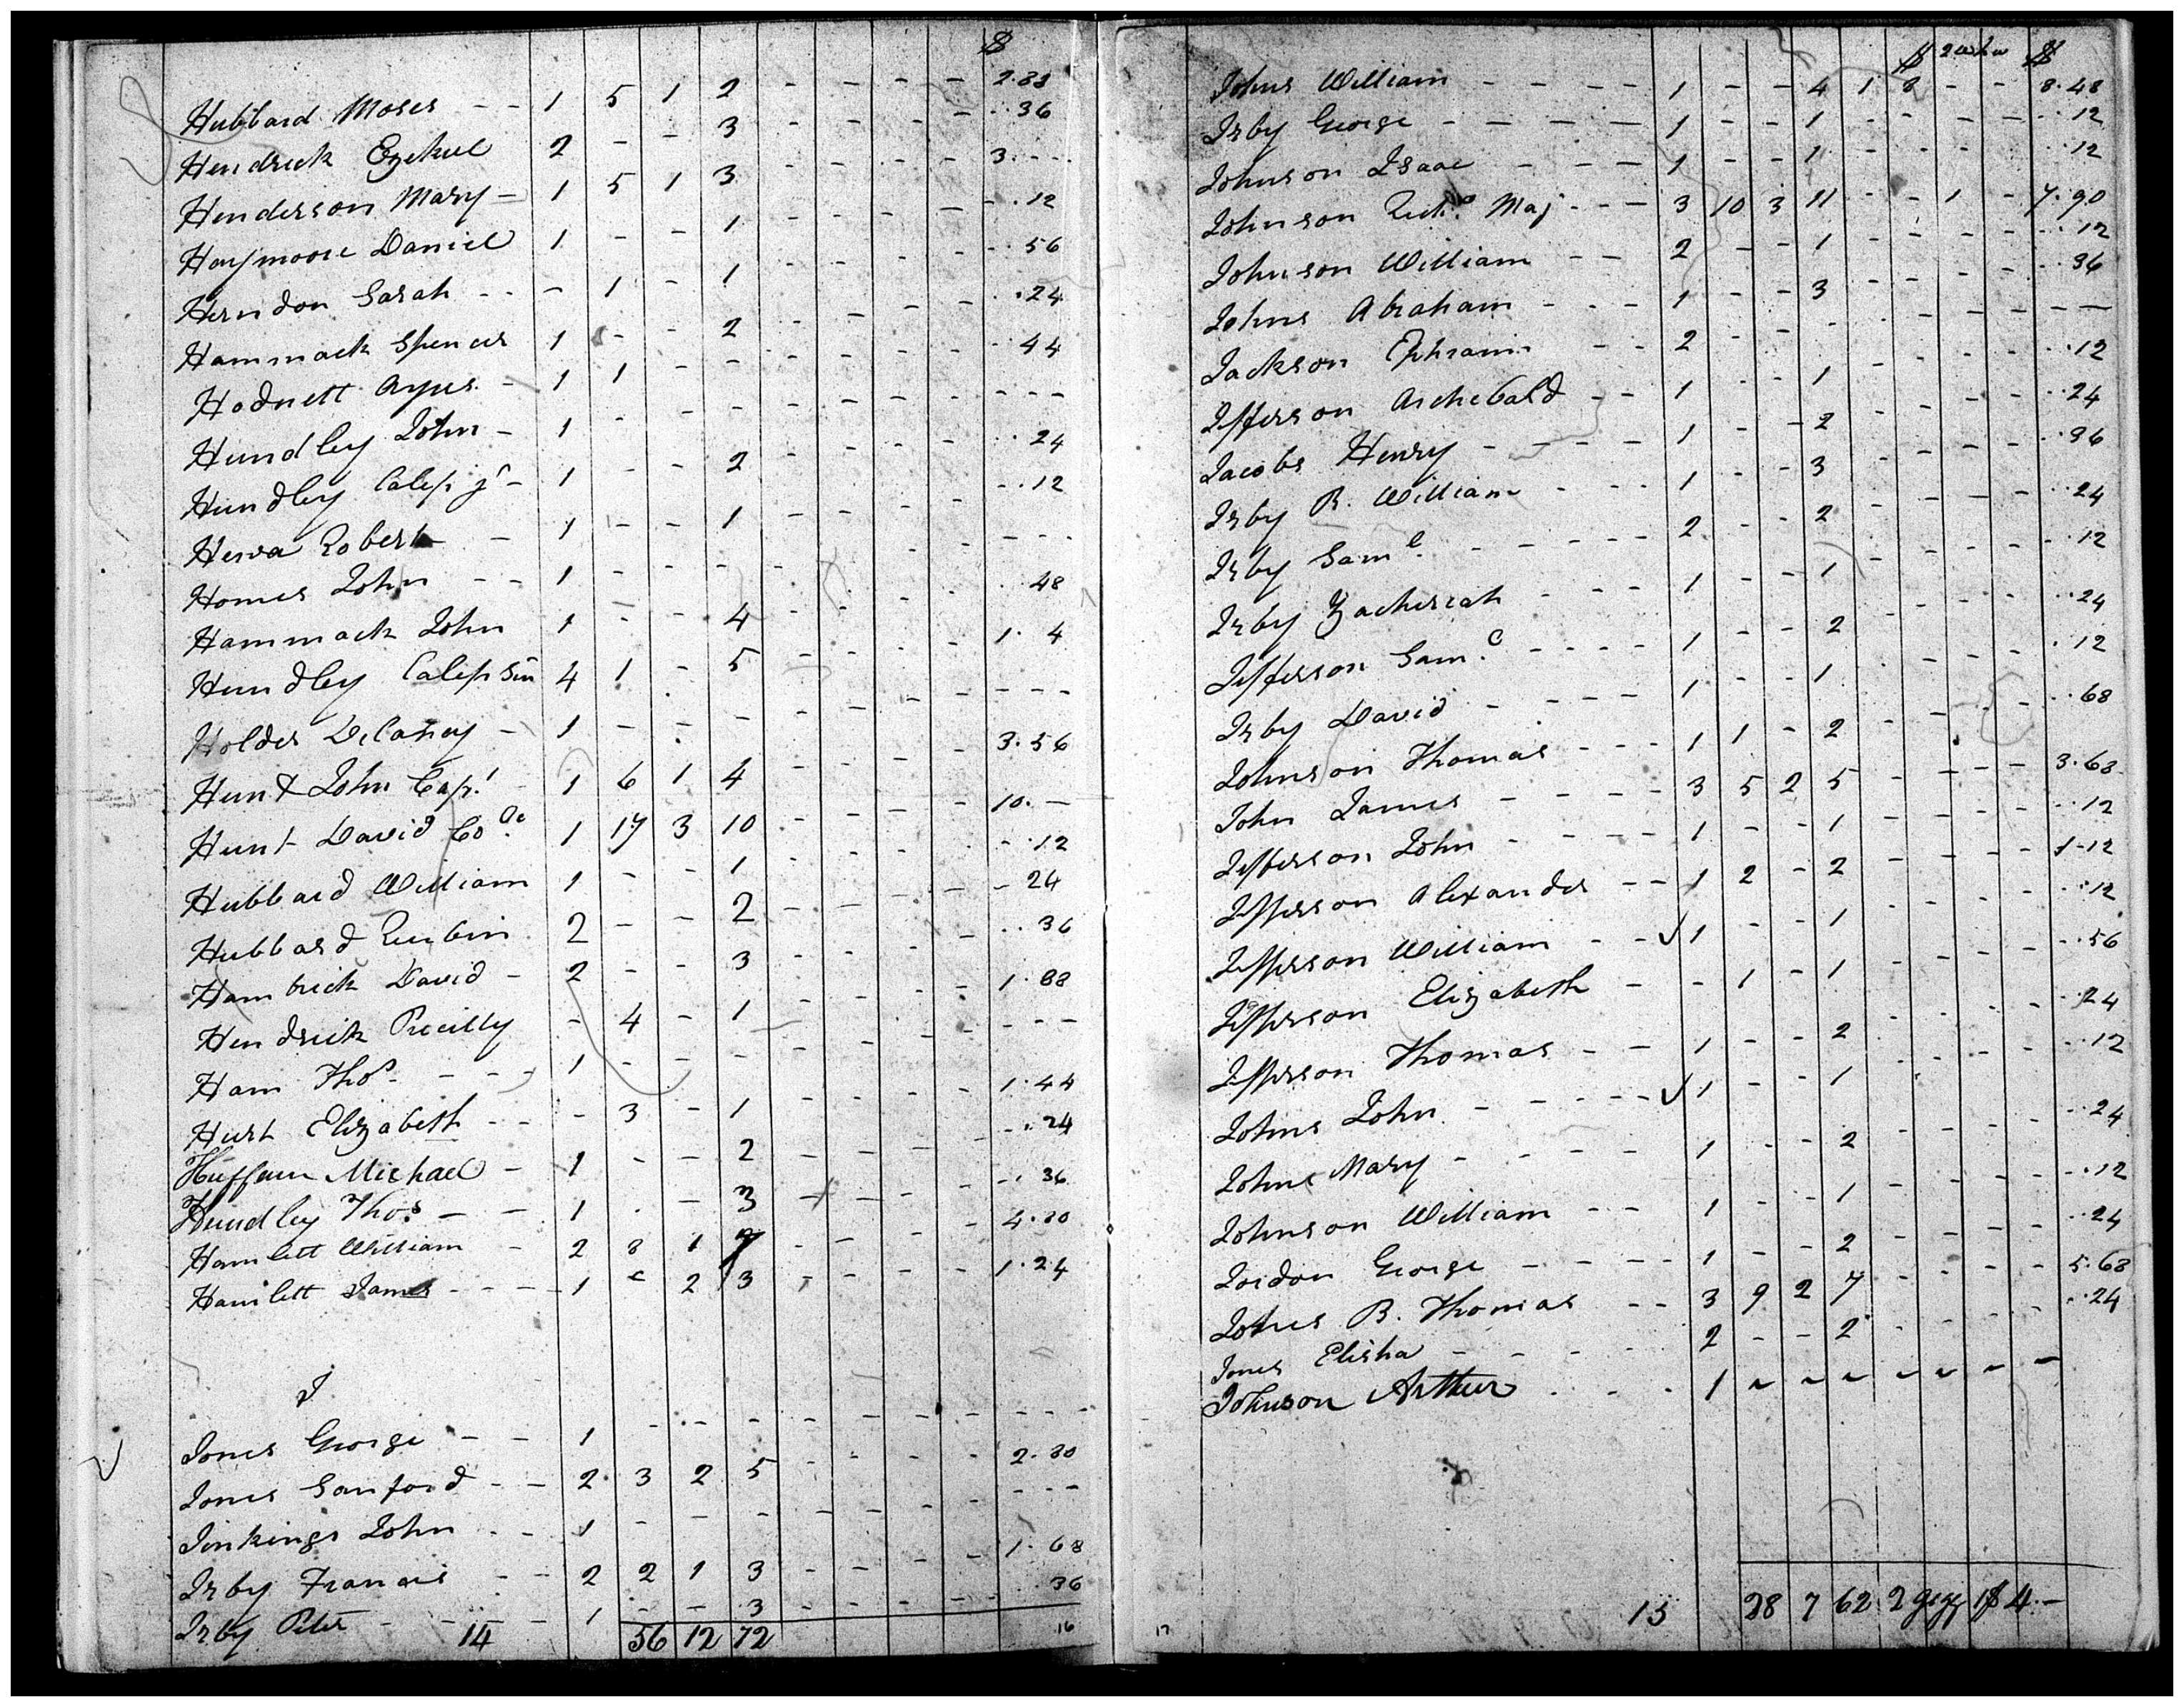 $
Hubbard Moses - - 1 5 1 2 - - - - 2.83
Hendrick Ezekiel 2 - - 3 - - - - ..36
Henderson Mary - 1 5 1 3 - - - - 3.--
Haymoore Daniel 1 - - 1 - - - - ..12
Herndon Sarah - - - 1 - 1 - - - - ..56
Hammack Spencer 1 - - 2 - - - - .24
Hodnett Ayres - 1 1 - - - - - - ..44
Hundley John - 1 - - - - - - - - - -
Hundley Calep jr - 1 - - 2 - - - - ..24
Robert - 1 - - 1 - - - - ..12
Homes John - - 1 - - - - - - - - - -
Hammack John 1 - - 4 - - - - .48
Hundley Calep Sen 4 1 - 5 - - - - 1. 4
Holder Delaney - 1 - - - - - - - - - -
Hunt John Capt 1 6 1 4 - - - - 3.56
Hunt David Col. 1 17 3 10 - - - - 10. -
Hubbard William 1 - - 1 - - - - ..12
Hubbard Reubin 2 - - 2 - - - - - 24
Hambrick David - 2 - - 3 - - - - ..36
Hendrick - 4 - 1 - - - - 1.88
Ham Thos. - - - 1 - - - - - - - - - -
Hurt Elizabeth - - - 3 - 1 - - - - 1.44
Michael - 1 - - 2 - - - - ..24
Hundley Thos. - - 1 - - 3 - - - - .36
Hamlett William - 2 8 1 7 - - - - 4.20
Hamlett James - - - 1 2 3 - - - - 1.24
J
Jones George - - 1 - - - - - - - - - -
Jones Sanford - - 2 3 2 5 - - - - 2.30
Jinkings John - - 1 - - - - - - - - - -
Irby Francis - - 2 2 1 3 - - - - 1.68
Irby Peter - - - - 1 - - 3 - - - - ..36
14 56 12 72 16
$ 2 $
Johns William - - - - 1 - - 4 1 8 - - 8.48
Irby George - - - - 1 - - 1 - - - - ..12
Johnson Isaac - - - 1 - - 1 - - - - ..12
Johnson Richd. Maj - - - 3 10 3 11 - - 1 - 7.90
Johnson William - - 2 - - 1 - - - - ..12
Johns Abraham - - - 1 - - 3 - - - - .36
Jackson Ephraim - - 2 - - - - - - - —
Jefferson Archebald - - 1 - - 1 - - - - ..12
Jacobs Henry - - - - 1 - - 2 - - - - ..24
Irby B. William - - - 1 - - 3 - - - - ..36
Irby Saml. - - - - - 2 - - 2 - - - - ..24
Irby Zacheriah - - - 1 - - 1 - - - - ..12
Jefferson Saml. - - - - 1 - - 2 - - - - ..24
Irby David - - - - 1 - - 1 - - - - .12
Johnson Thomas - - - 1 1 - 2 - - - - ..68
John James - - - - 3 5 2 5 - - - - 3.68
Jefferson John - - - - 1 - - 1 - - - - ..12
Jefferson Alexander - - 1 2 - 2 - - - - 1-12
Jefferson William - - √1 - - 1 - - - - ..12
Jefferson Elizabeth - - 1 - 1 - - - - ..56
Jefferson Thomas - - 1 - - 2 - - - - ..24
Johns John - - - - - √1 - - 1 - - - - ..12
Johns Mary - - - - 1 - - 2 - - - - ..24
Johnson William - - 1 - - 1 - - - - ..12
Jordon George - - - - 1 - - 2 - - - - ..24
Jones B. Thomas - - 3 9 2 7 - - - - 5.68
Jones Elisha - - - - 2 - - 2 - - - - ..24
Johnson Arthur . . . . 1 ~ ~ ~ ~ ~ ~ —
15 28 7 62 2 4.—
17